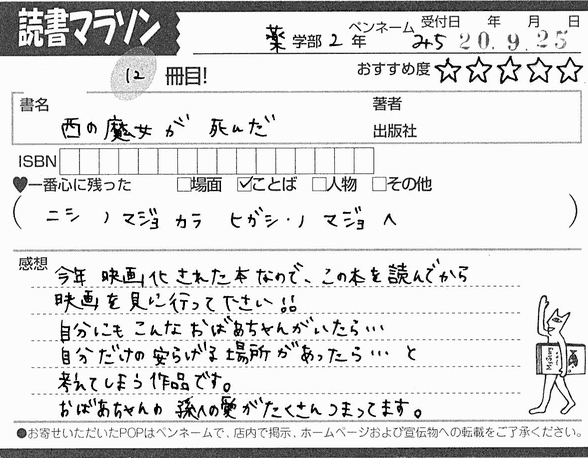 読書マラソン
薬 学部 2 年 ペンネーム みち 受付日 年 月 日 20.9.25
12 冊目!
おすすめ度 ☆☆☆☆☆
書名 西の魔女が 死んだ
著者
出版社
ISBN
♥一番心に残った □場面 ☑ことば □人物 □その他
( ニシ ノ マジョ カラ ヒガシ・ノ マジョ へ )
感想
今年 映画化された本なので、この本を読んでから
映画を見に行って下さい!!
自分にもこんなおばあちゃんがいたら…
自分だけの安らげる場所があったら… と
考えてしまう作品です。
おばあちゃんの 孫への愛がたくさんつまってます。
●お寄せいただいたPOPはペンネームで、店内で掲示、ホームページおよび宣伝物への転載をご了承ください。